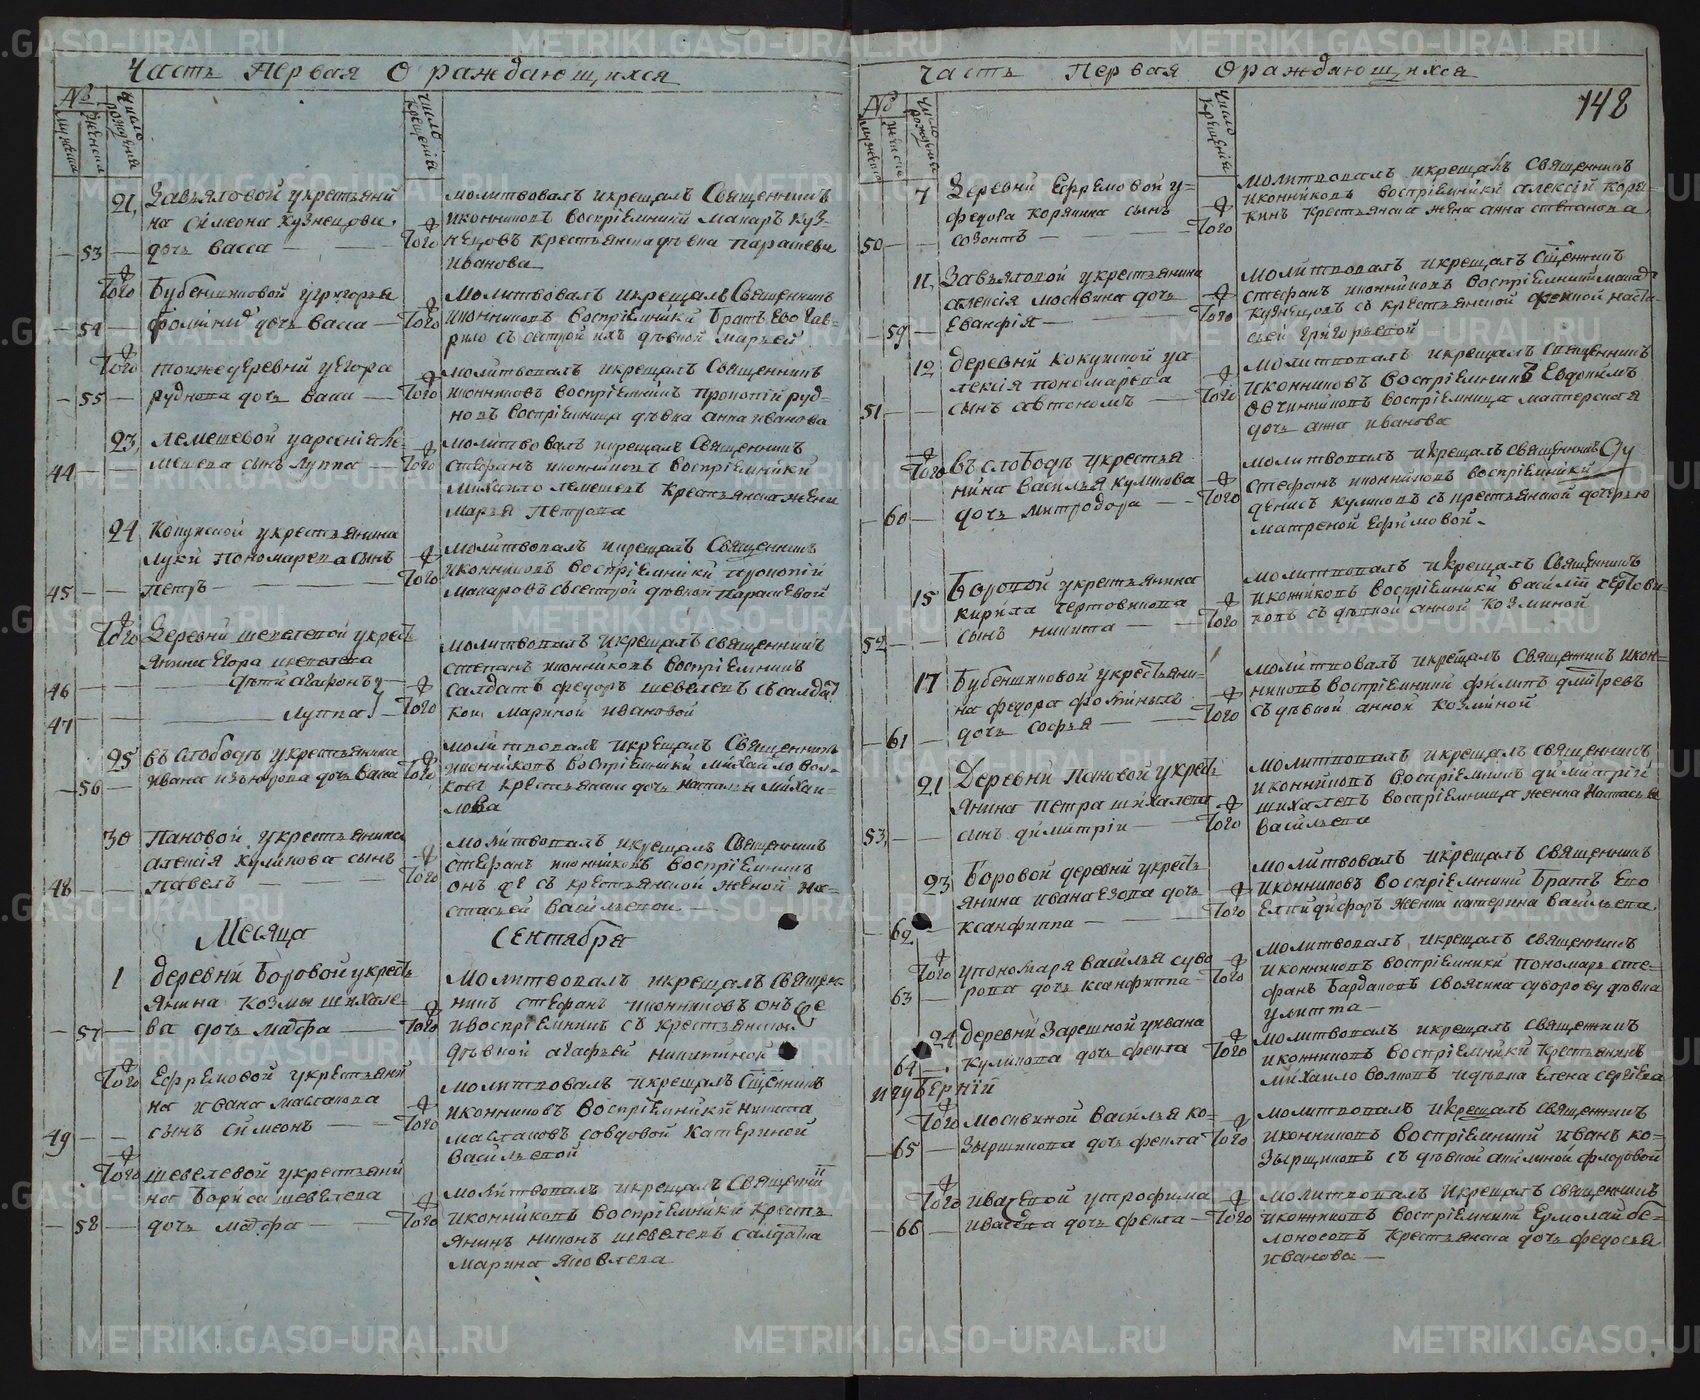 Часть Первая О раждающихся
№
мужеска
женска
число рождения
число крещения
21, Завьяловой укрестьяни
на Симеона Кузнецова
53 дочь Васса
Того
молитвовалъ икрещалъ Священникъ
иконниковъ воспрiемники Макаръ Куз-
нецовъ крестьянска дѣвка Параскева
Иванова
Того Бубенщиковой угригорья
54 Фоминыхъ дочь Васса Того
Молитвовалъ икрещалъ Священникъ
иконниковъ воспрiемники братъ Его Гав-
рило съ сестрой ихъ дѣвкой Марьей
Того тоижедеревни уЕгора
55 Руднова дочь Васса Того
молитвовалъ икрещалъ Священникъ
иконниковъ воспрiемникъ Прокопiй Руд-
новъ воспрiемница дѣвка Анна иванова
23, Лемешевой уарсенiя Ле-
44 мешева сынъ Луппа Того
молитвовалъ икрещалъ Священникъ
Стефанъ иконниковъ воспрiемники
Михаило Лемешевъ крестьянска жена
Марья Петрова
24 Кокуйской укрестьянина
Луки Пономарева сынъ
45 Петръ Того
молитвовалъ икрещалъ Священникъ
иконниковъ воспрiемники Прокопiй
Макаровъ съсестрой дѣвкой Параскевой
Того Деревни шевелевой укресть
янина Егора шевелева
46 дѣти агафонъ
47 Луппа Того
молитвовалъ икрещалъ священникъ
стефанъ иконниковъ воспрiемникъ
салдатъ федоръ шевелевъ съ салдат
кои Мариной Ивановой
25 въ слободѣ укрестьянина
56 Ивана дочь Васса Того
молитвовалъ икрещалъ Священникъ
иконниковъ воспрiемники михаило Вол-
ковъ крестьянска дочь Наталья Михаи-
лова
30 Пановой укрестьянина
алексiя Куликова сынъ
48 Павелъ Того
молитвовалъ икрещалъ Священникъ
Стефанъ иконниковъ воспрiемникъ
онъ же съ крестьянской женой На-
стасьей Васильевои
Месяца Сентября
1 деревни Боровой укресть
янина Козмы шихале-
57 ва дочь Марфа Того
Молитвовалъ икрещалъ священ-
никъ стефанъ иконниковъ онъ же
ивоспрiемникъ съ крестьянской
дѣвкой агафьей никитиной
Того Ефремовой укрестьяни
на ивана маслакова
49 сынъ симеонъ Того
молитвовалъ икрещалъ Священникъ
иконниковъ воспрiемники никита
маслаковъ совдовой Катериной
Васильевой
Того шевелевой укрестьяни
на Бориса шевелева
58 дочь Марфа Того
молитвовалъ икрещалъ священникъ
иконниковъ воспрiемники кресть
янинъ шевелевъ салдатка
Марина Яковлева
Часть Первая Ораждающихся
148
№
мужеска
женска
число рождения
число крещения
7 Деревни Ефремовой у-
федора Корякина сынъ
50 созонтъ Того
молитвовалъ икрещалъ священникъ
иконниковъ воспрiемники алексiй Коря-
кинъ крестьянска жена анна степанова
11, Завьяловой укрестьянина
алексiя москвина дочь
59 Еванфiя Того
молитвовалъ икрещалъ Священникъ
стефанъ иконниковъ воспрiемники
Кузнецовъ съ крестьянской женкой наста-
сьей григорьевой
12 деревни кокуйской уа
лексiя пономарева
51 сынъ автономъ Того
молитвовалъ икрещалъ священникъ
иконниковъ воспрiемникъ Евдокимъ
овчинниковъ воспрiемница
дочь анна иванова
Того въ слободѣ укрестья
нина Василья Куликова
60 дочь митродора Того
молитвовалъ икрещалъ священникъ
стефанъ иконниковъ воспрiемники
денисъ куликовъ съ крестьянской дочерью
матреной Ефимовой
15 Боровой укрестьянина
кирила чертовикова
52 сынъ никита Того
молитвовалъ икрещалъ священникъ
иконниковъ воспрiемники василiй чертови-
ковъ съ дѣвкой анной козминой
17 Бубенщиковой укрестьяни-
на федора фоминыхъ
61 дочь софья Того
молитвовалъ икрещалъ священникъ икон-
никовъ воспрiемники филипъ дмитревъ
съ дѣвкой анной козминой
21 Деревни пановой укресть
янина петра шихалева
53, сынъ димитрiи Того
молитвовалъ икрещалъ священникъ
иконниковъ воспрiемникъ димитрiй
шихалевъ воспрiемница женка настасья
Васильева
23 Боровой деревни укресть
янина ивана Езова дочь
62 ксанфиппа Того
молитвовалъ икрещалъ священникъ
иконниковъ воспрiемники братъ Его
Елпидифоръ женка катерина васильева
Того упономаря василья суво
63 рова дочь ксанфиппа Того
молитвовалъ икрещалъ священникъ
иконниковъ воспрiемники пономарь сте-
фанъ Бардаковъ своячина суворову дѣвка
улитта
24 деревни Зарешной уивана
64 куликова дочь фекла Того
молитвовалъ икрещалъ священникъ
иконниковъ воспрiемники крестьянинъ
михаило волковъ идѣвка Елена сергiева
Того москвиной василья ко-
65 зырщикова дочь фекла Того
молитвовалъ икрещалъ священникъ
иконниковъ воспрiемники иванъ ко-
зырщиковъ съ дѣвкой акилиной флоровой
Того ивачевой утрофима
66 ивачева дочь фекла Того
молитвовалъ икрещалъ священникъ
иконниковъ воспрiемники Ермолай бе-
лоносовъ крестьянска дочь федосья
иванова
METRIKI.GASO-URAL.RU